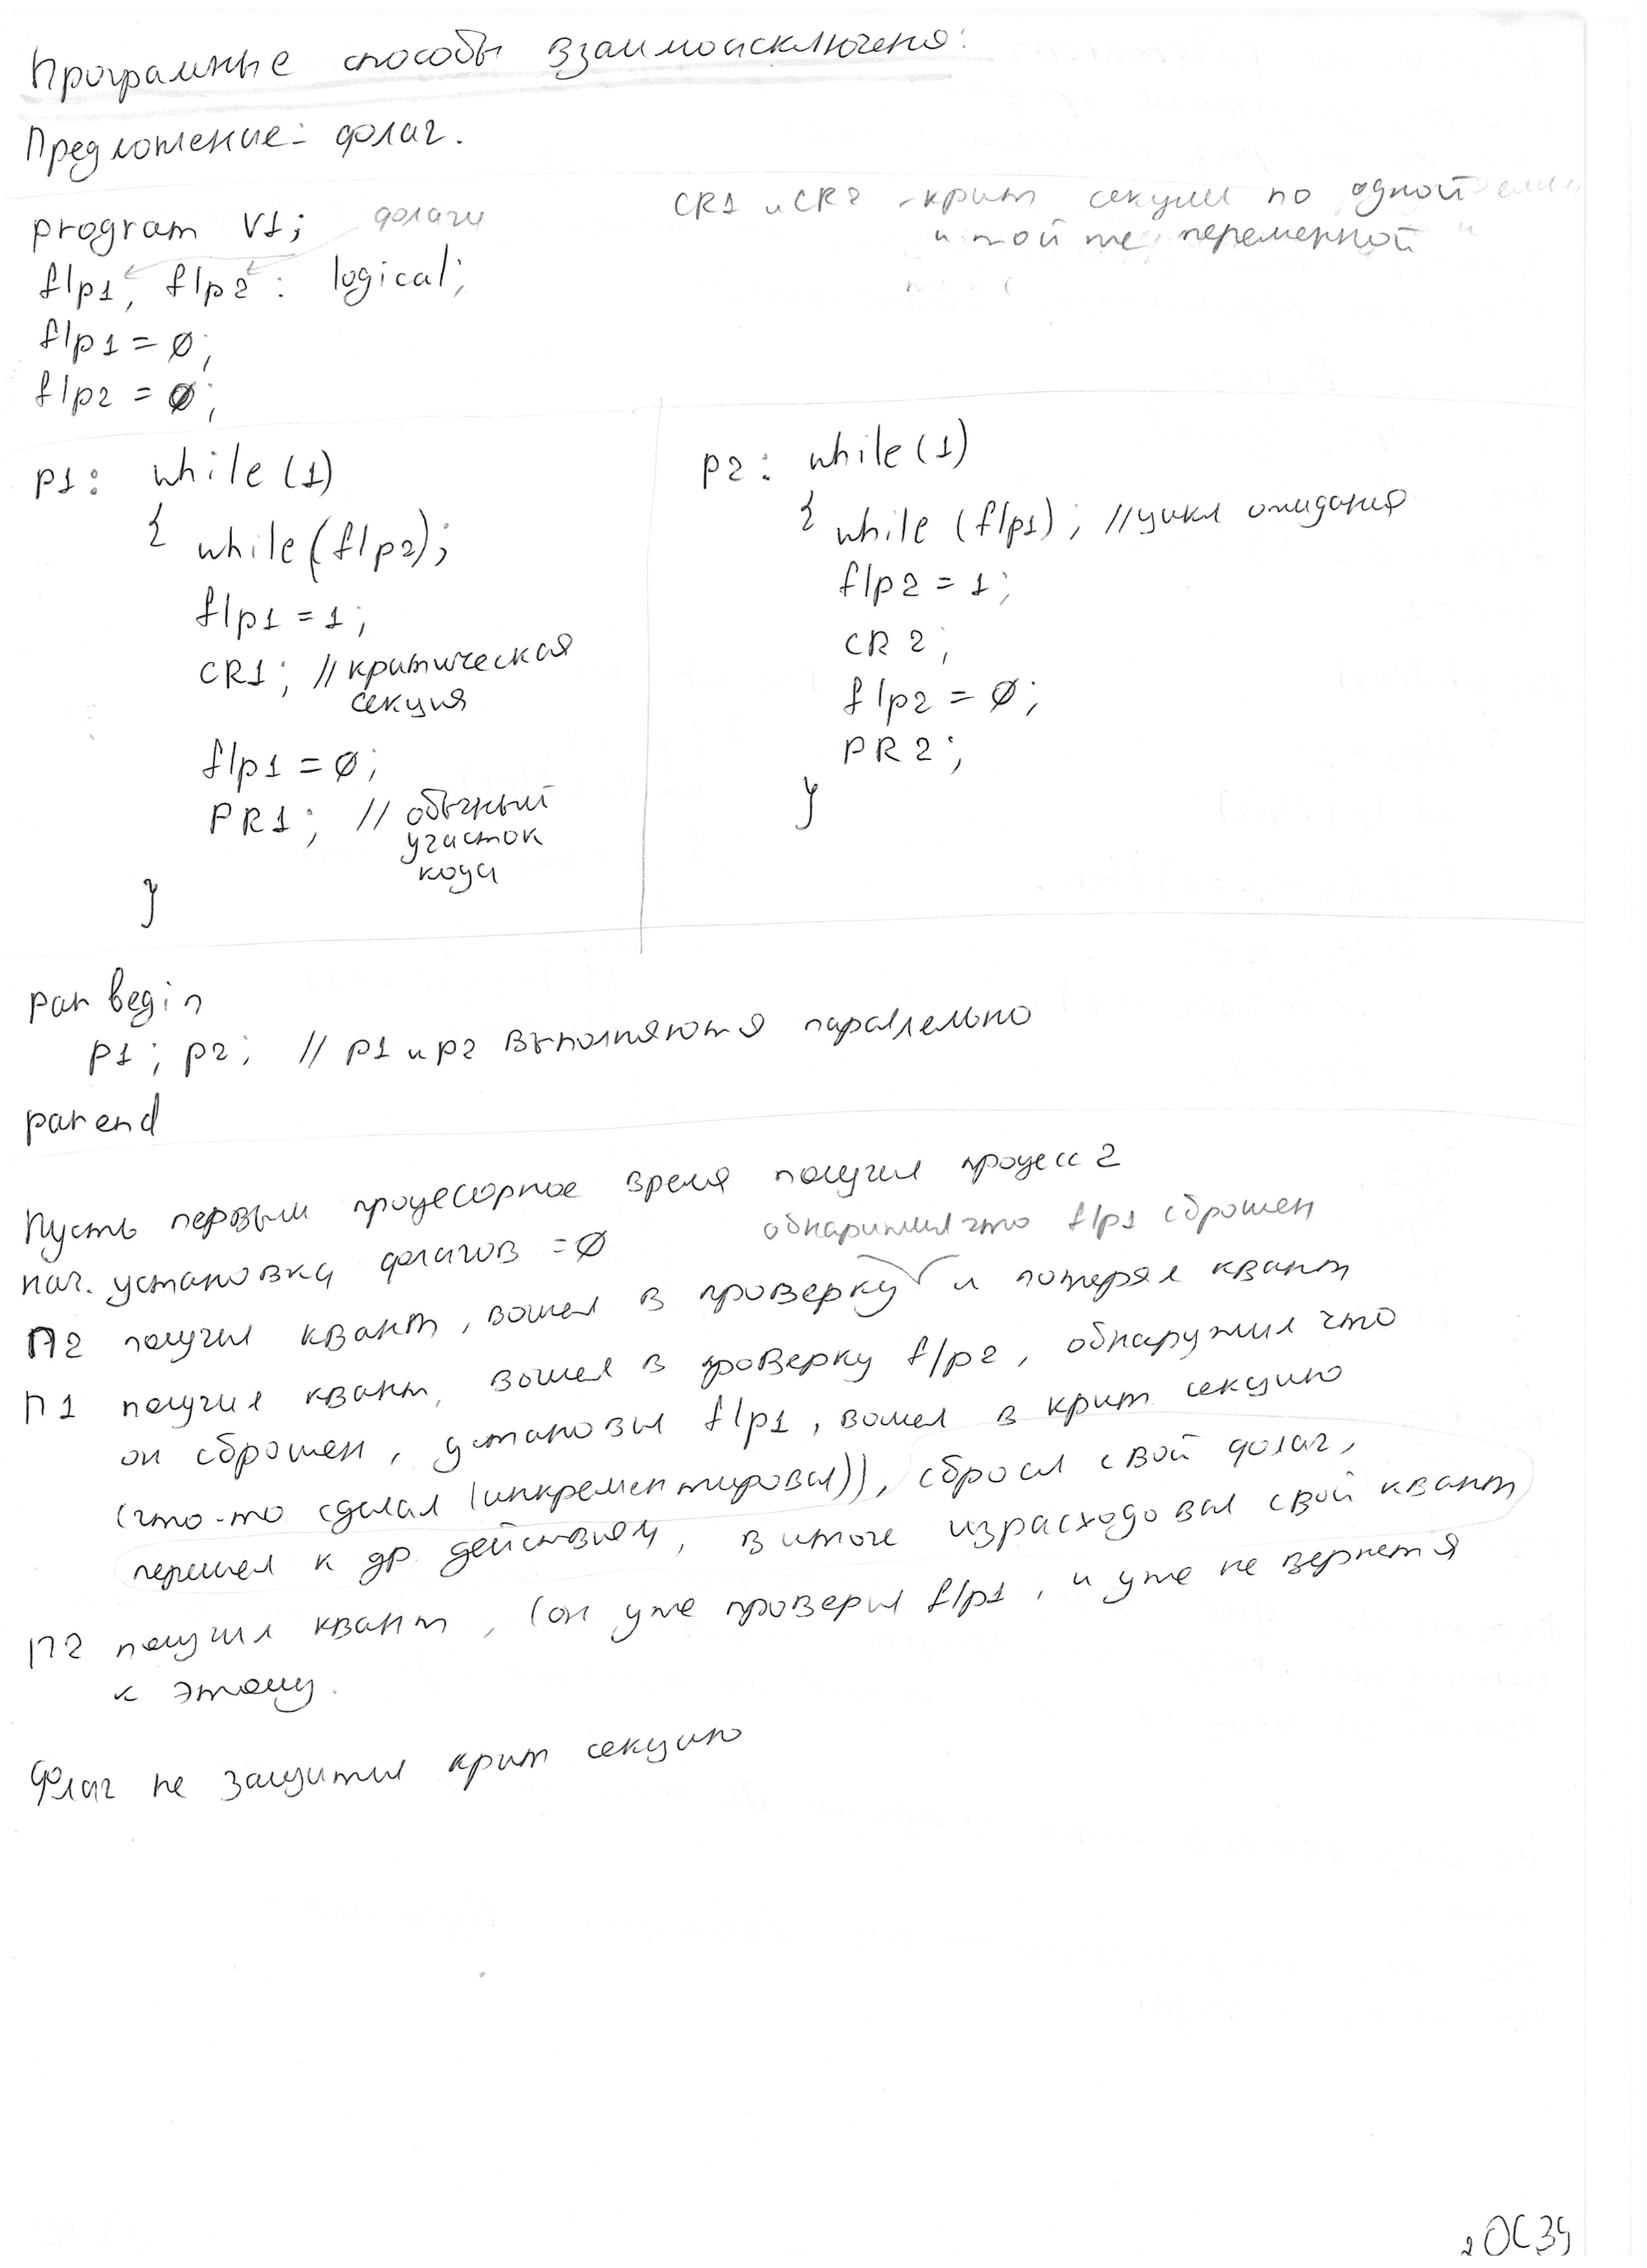 Програмные способы взаимоисключеня:
Предложение - флаг.
program V1; флаги
CR1 и CR2 - крит секции по одной
и той же переменной
flp1, flp2 : logical;
flp1 = 0;
flp2 = 0;
p1: while (1)
{ while (flp2);
flp1 = 1;
CR1; // критическая
секция
flp1 = 0;
PR1; // обычный
участок
кода
}
p2: while (1)
{ while (flp1); // цикл ожидания
flp2 = 1;
CR2;
flp2 = 0;
PR2;
}
par begin
p1; p2; // p1 и p2 выполняются паралельно
par end
Пусть первым процесорное время получил процесс 2
нач. установка флагов = 0
обнаружил что flp1 сброшен
П2 получил квант, вошел в проверку и потерял квант
П1 получил квант, вошел в проверку flp2, обнаружил что
он сброшен, установил flp1, вошел в крит секцию
(что-то сделал (инкрементировал)), сбросил свой флаг,
перешел к др. действиям, в итоге израсходовал свой квант
П2 получил квант, (он уже проверил flp1, и уже не вернется
к этому.
Флаг не защитил крит секцию